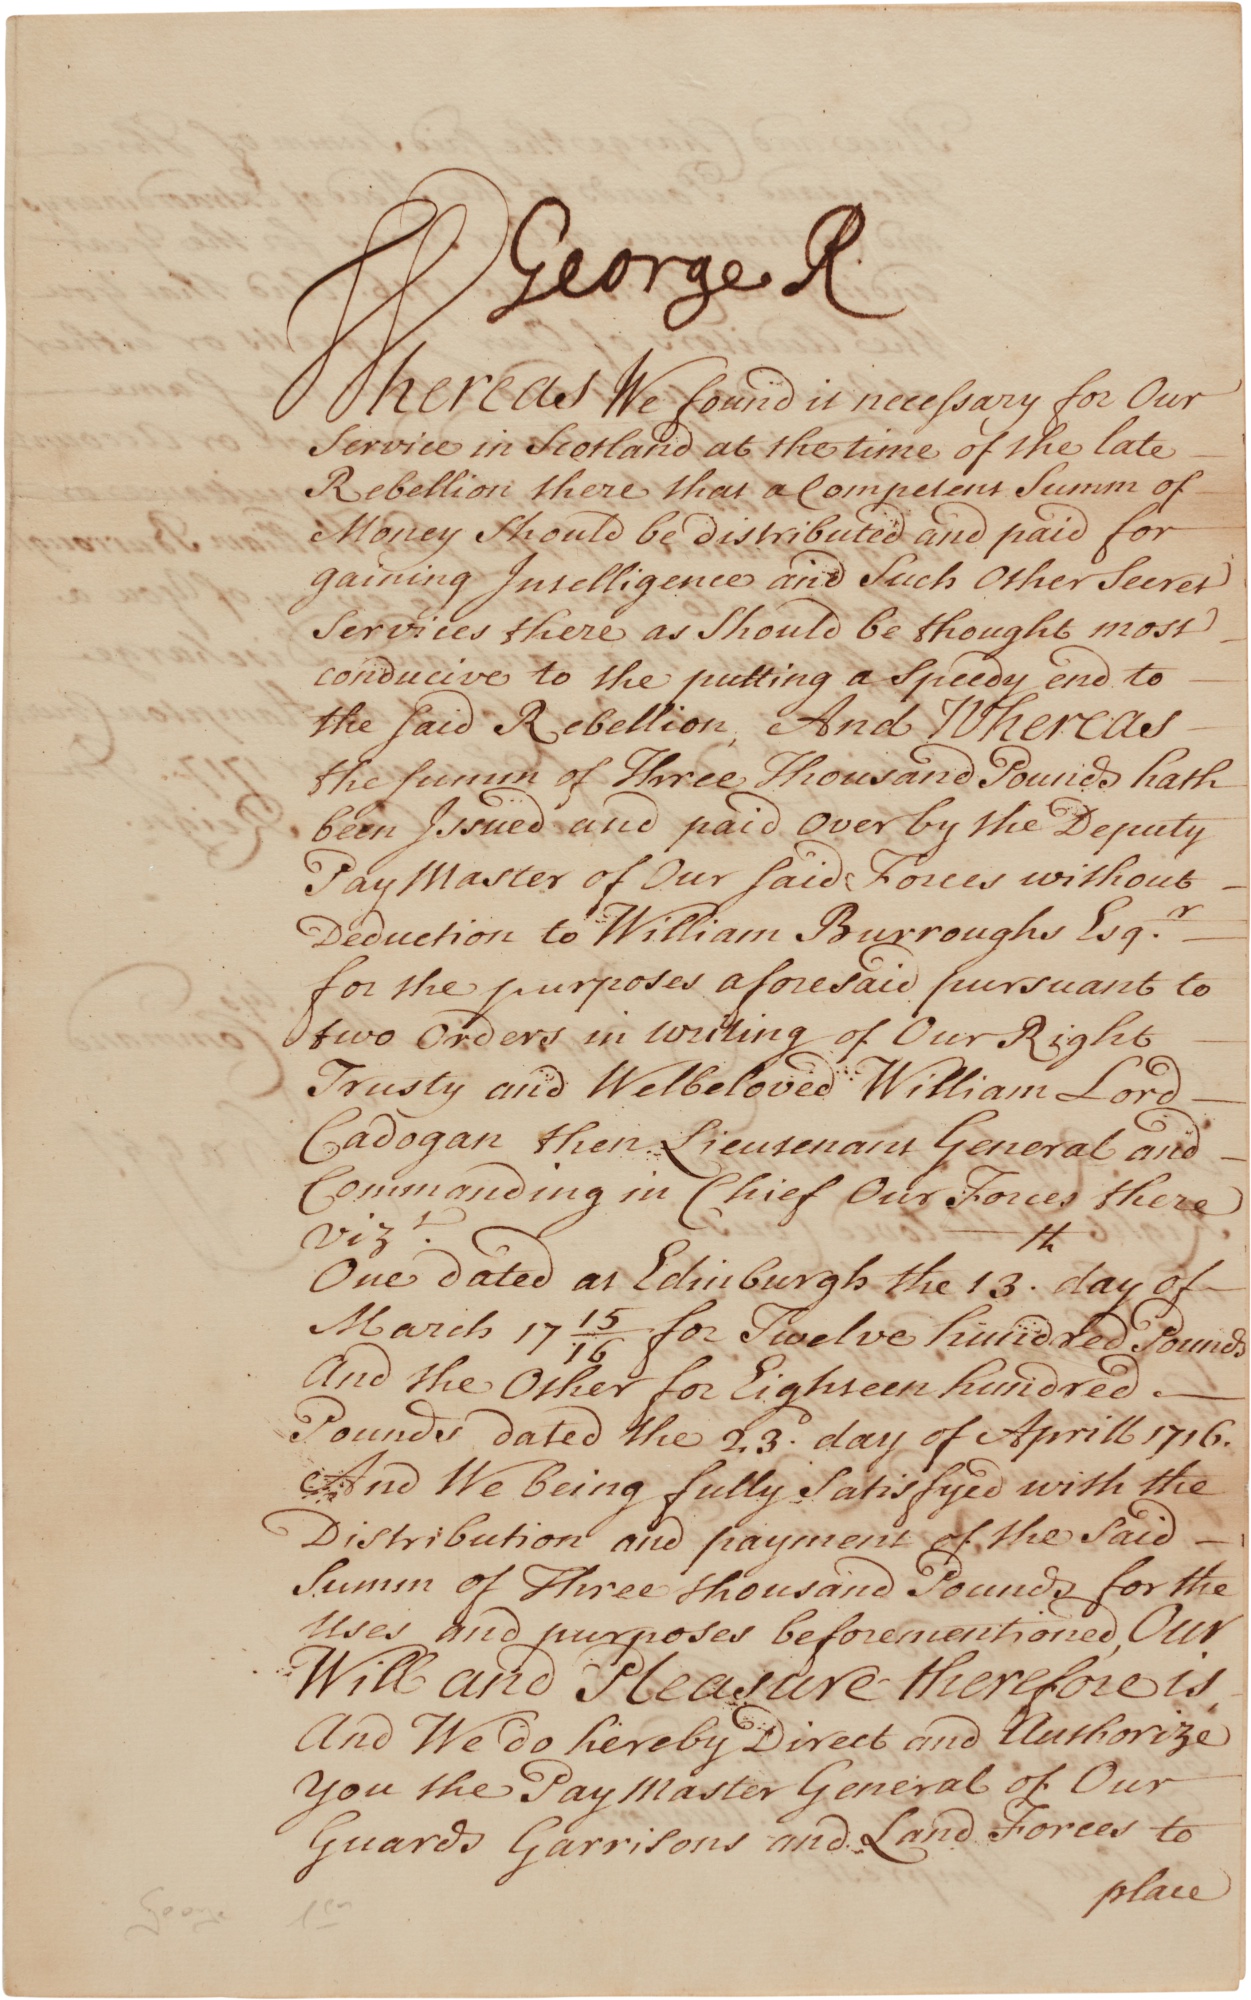 George R
Whereas We found it necessary for Our
Service in Scotland at the time of the late
Rebellion there that a Competent Summ of
Money Should be distributed and paid for
gaining Intelligence and Such Other Secret
Services there as Should be thought most
conducive to the putting a Speedy end to
the said Rebellion, And Whereas
the summ of Three Thousand Pounds hath
been Issued and paid over by the Deputy
PayMaster of Our said Forces without
Deduction to William Burroughs Esqr.
for the purposes aforesaid pursuant to
two Orders in writing of Our Right
Trusty and Welbeloved William Lord
Cadogan then Lieutenant General and
Commanding in Chief Our Forces there
vizt.
One dated at Edinburgh the 13th. day of
March 17 15/16 for Twelve hundred Pounds
And the Other for Eighteen hundred
Pounds dated the 23d. day of Aprill 1716.
And We being fully Satisfyed with the
Distribution and payment of the Said
Summ of Three thousand Pounds for the
Uses and purposes beforementioned, Our
Will and Pleasure therefore is,
And We do hereby Direct and Authorize
You the PayMaster General of Our
Guards Garrisons and Land Forces to
place
George 1st